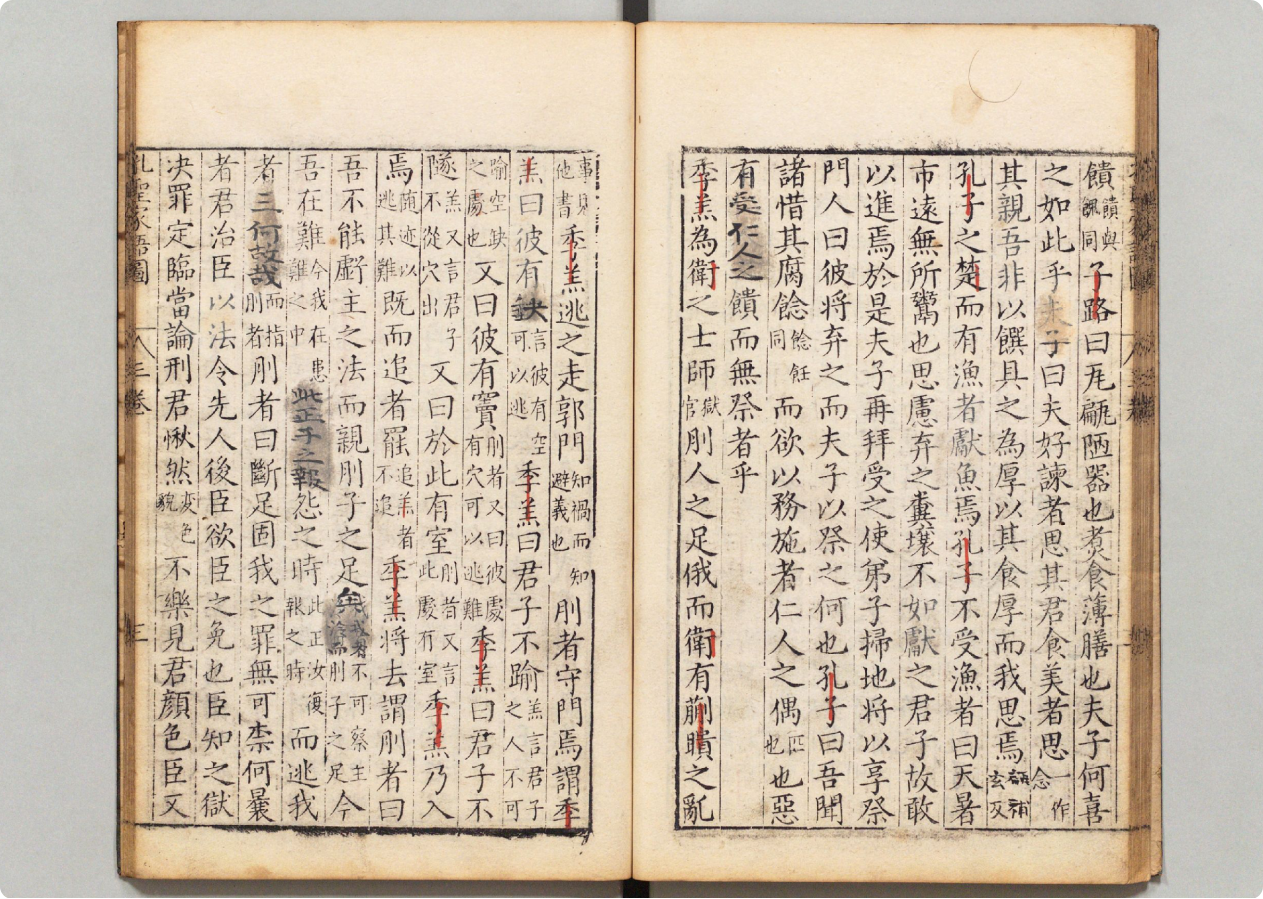 饋饋與餽同子路曰瓦甂陋器也煮食薄膳也夫子何喜
之如此乎夫子曰夫好諫者思其君食美者思一作念
其親吾非以饌具之為厚以其食厚而我思焉甂補玄反
孔子之楚而有漁者獻魚焉孔子不受漁者曰天暑
市遠無所鬻也思慮弃之糞壤不如獻之君子故敢
以進焉於是夫子再拜受之使弟子掃地將以享祭
門人曰彼將弃之而夫子以祭之何也孔子曰吾聞
諸惜其腐餘餘飪同而欲以務施者仁人之偶匹也也惡
有受仁人之饋而無祭者乎
季羔為衛之士師獄官刖人之足俄而衛有蒯聵之亂
事見他書季羔逃之走郭門知禍而避義也知刖者守門焉謂季
羔曰彼有缺言彼有空可以逃季羔曰君子不踰羔言君子之人不可
喻空缺之處也又曰彼有竇刖者又曰彼處有穴可以逃難季羔曰君子不
隧羔又言君子不從穴出又曰於此有室刖者又言此處有室季羔乃入
焉随迹以逃其難既而追者罷追羔者不追季羔将去謂刖者曰
吾不能虧主之法而親刖子之足不可虧主刖子之足今
吾在難今我在患難之中此正子之報怨之時此正汝復報之時而逃我
者三何故哉而指刖者刖者曰斷足固我之罪無可柰何曩
者君治臣以法令先人後臣欲臣之免也臣知之獄
决罪定臨當論刑君愀然变色貌不樂見君顔色臣又
孔聖家語圖
八三卷
三